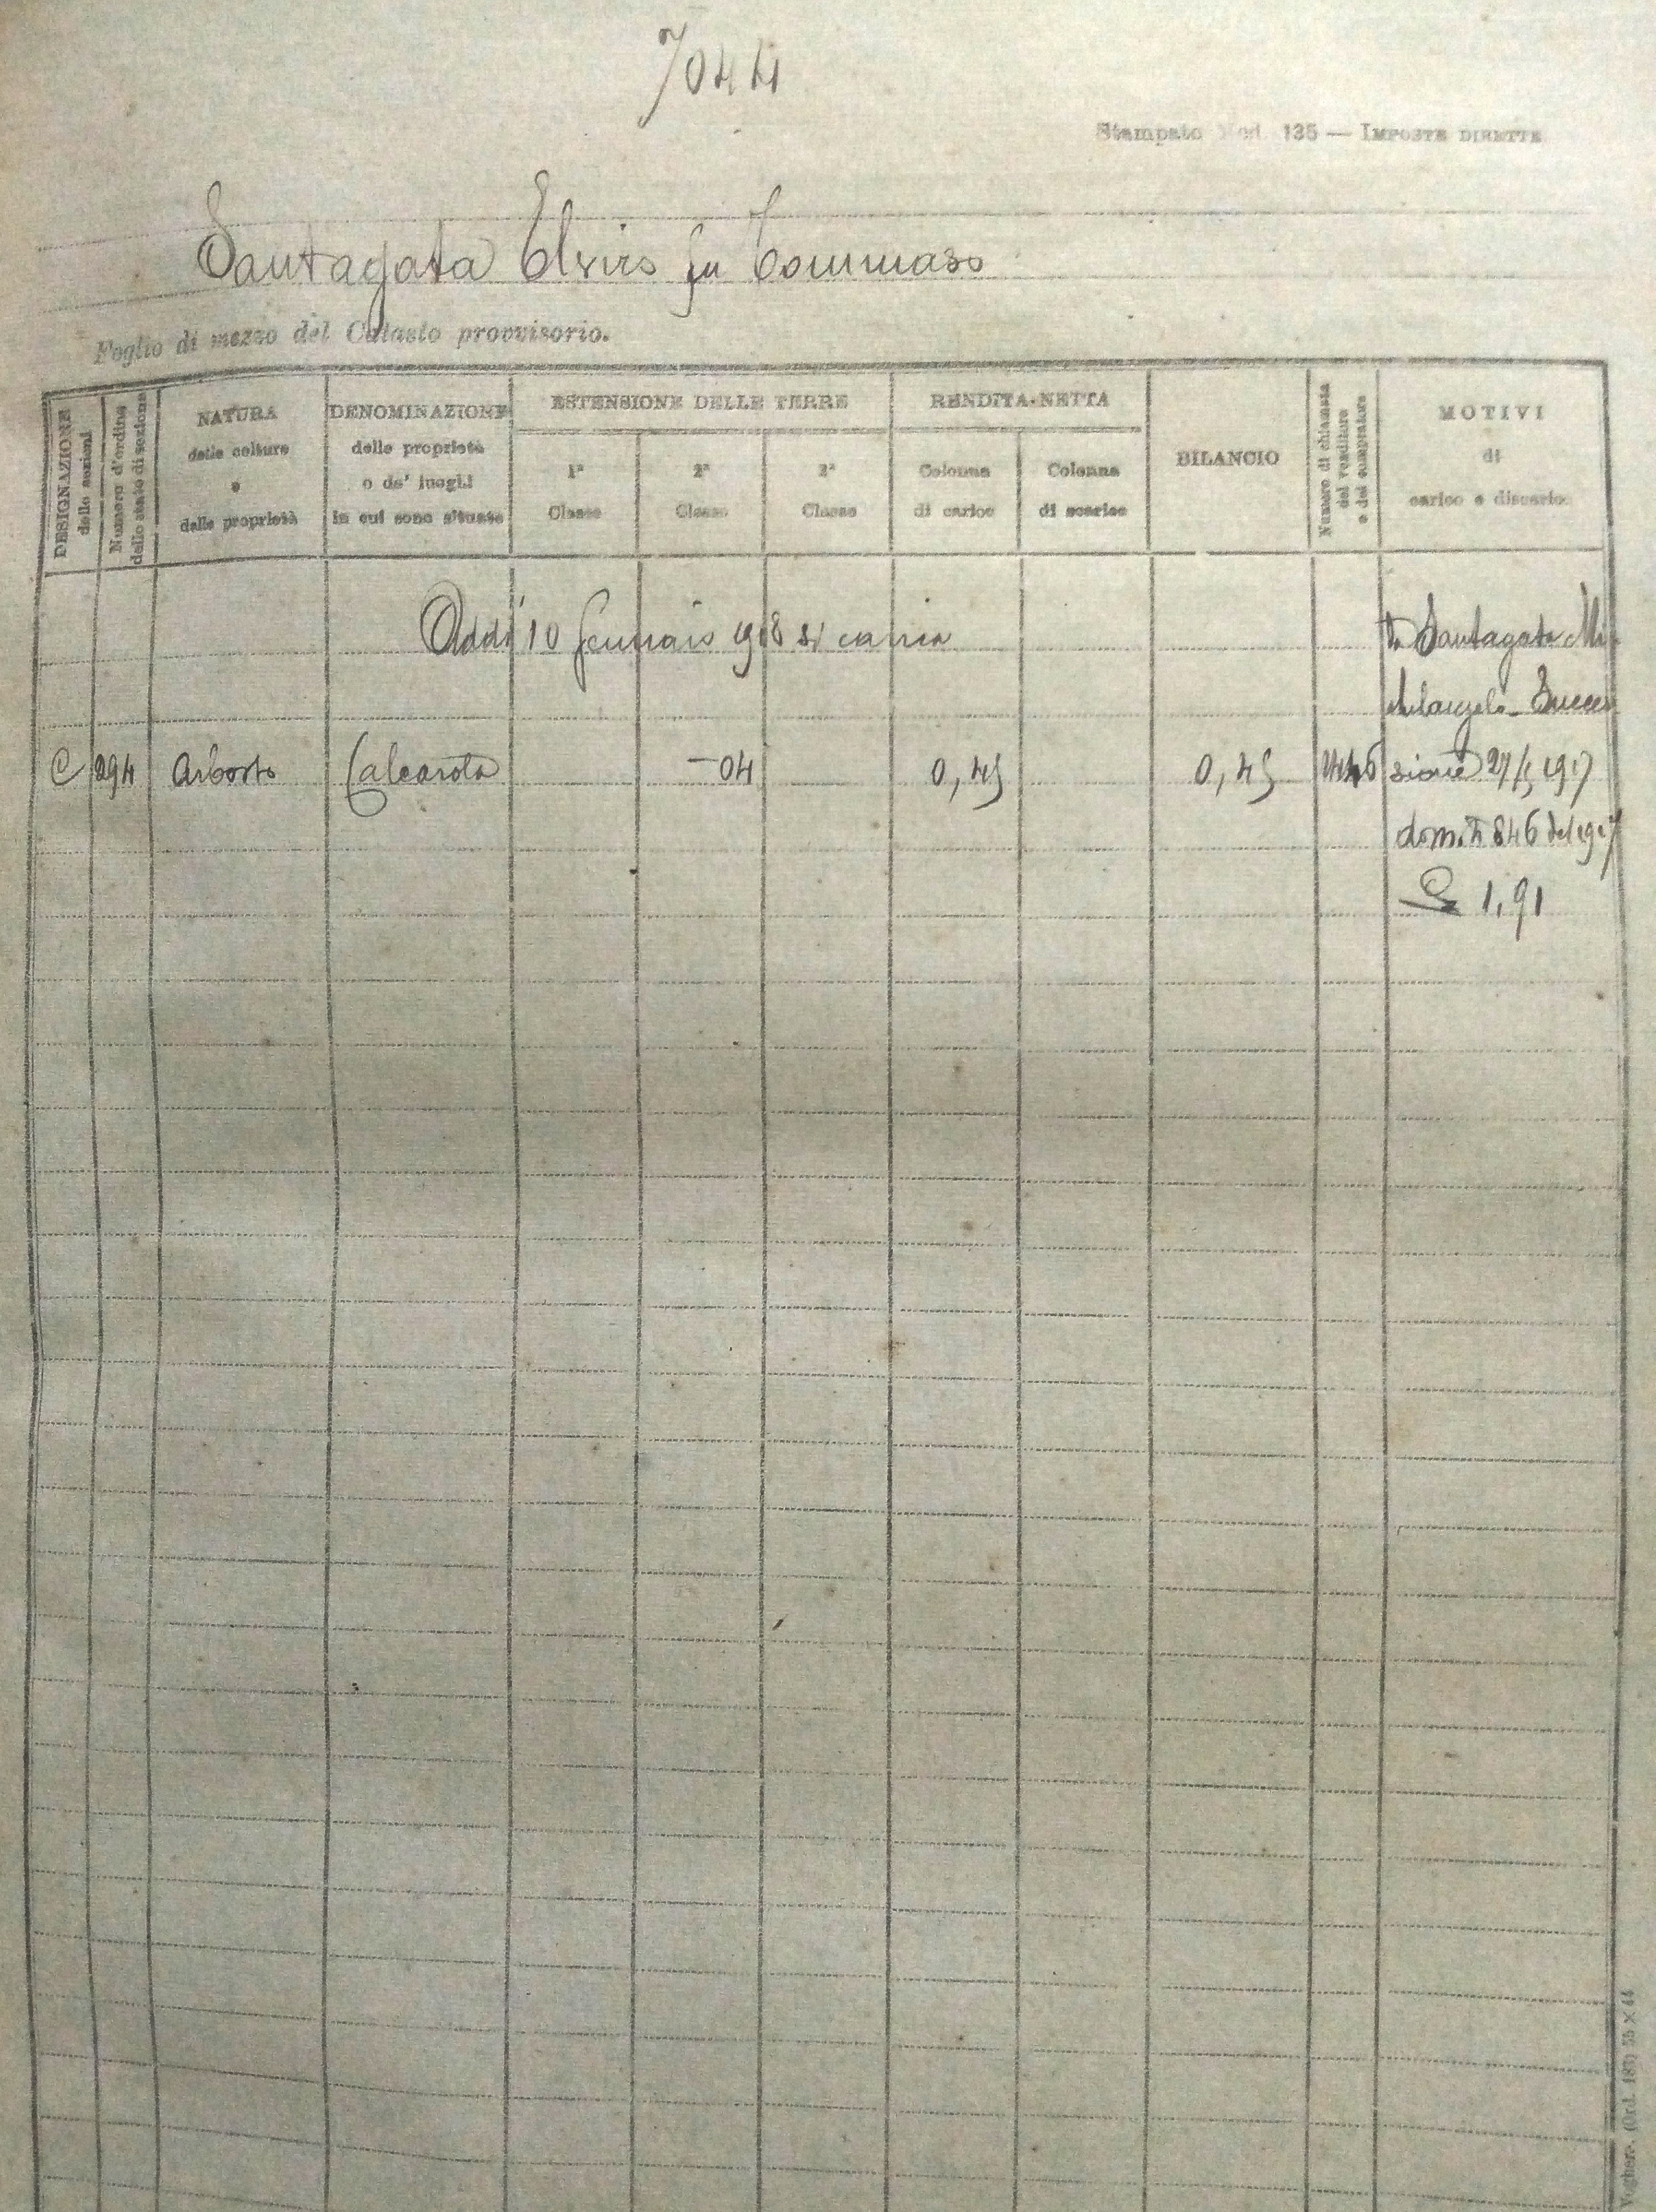 7044
Stampato Mod. 135 — IMPOSTE DIRETTE
Santagata Elviro fu Tommaso
Foglio di mezzo del Catasto provvisorio.
DESIGNAZIONE
delle sezioni
Numero d'ordine
dello stato di sezione
NATURA
delle colture
e
delle proprietà
DENOMINAZIONE
delle proprietà
o de' luoghi
in cui sono situate
ESTENSIONE DELLE TERRE
1ª
Classe
2ª
Classe
3ª
Classe
RENDITA-NETTA
Colonna
di carico
Colonna
di scarico
BILANCIO
Numero di chiamata
del venditore
e del compratore
MOTIVI
di
carico e discarico
Addì 10 Gennaio 1918 si carica
Santagata Mi
chelangelo - Succes
C 294 Arbosto Calcarola —04 0,45 0,45 sione 27/5 1917
dom. N 846 del 1917
1,91
(Ord. 183) 35 × 44